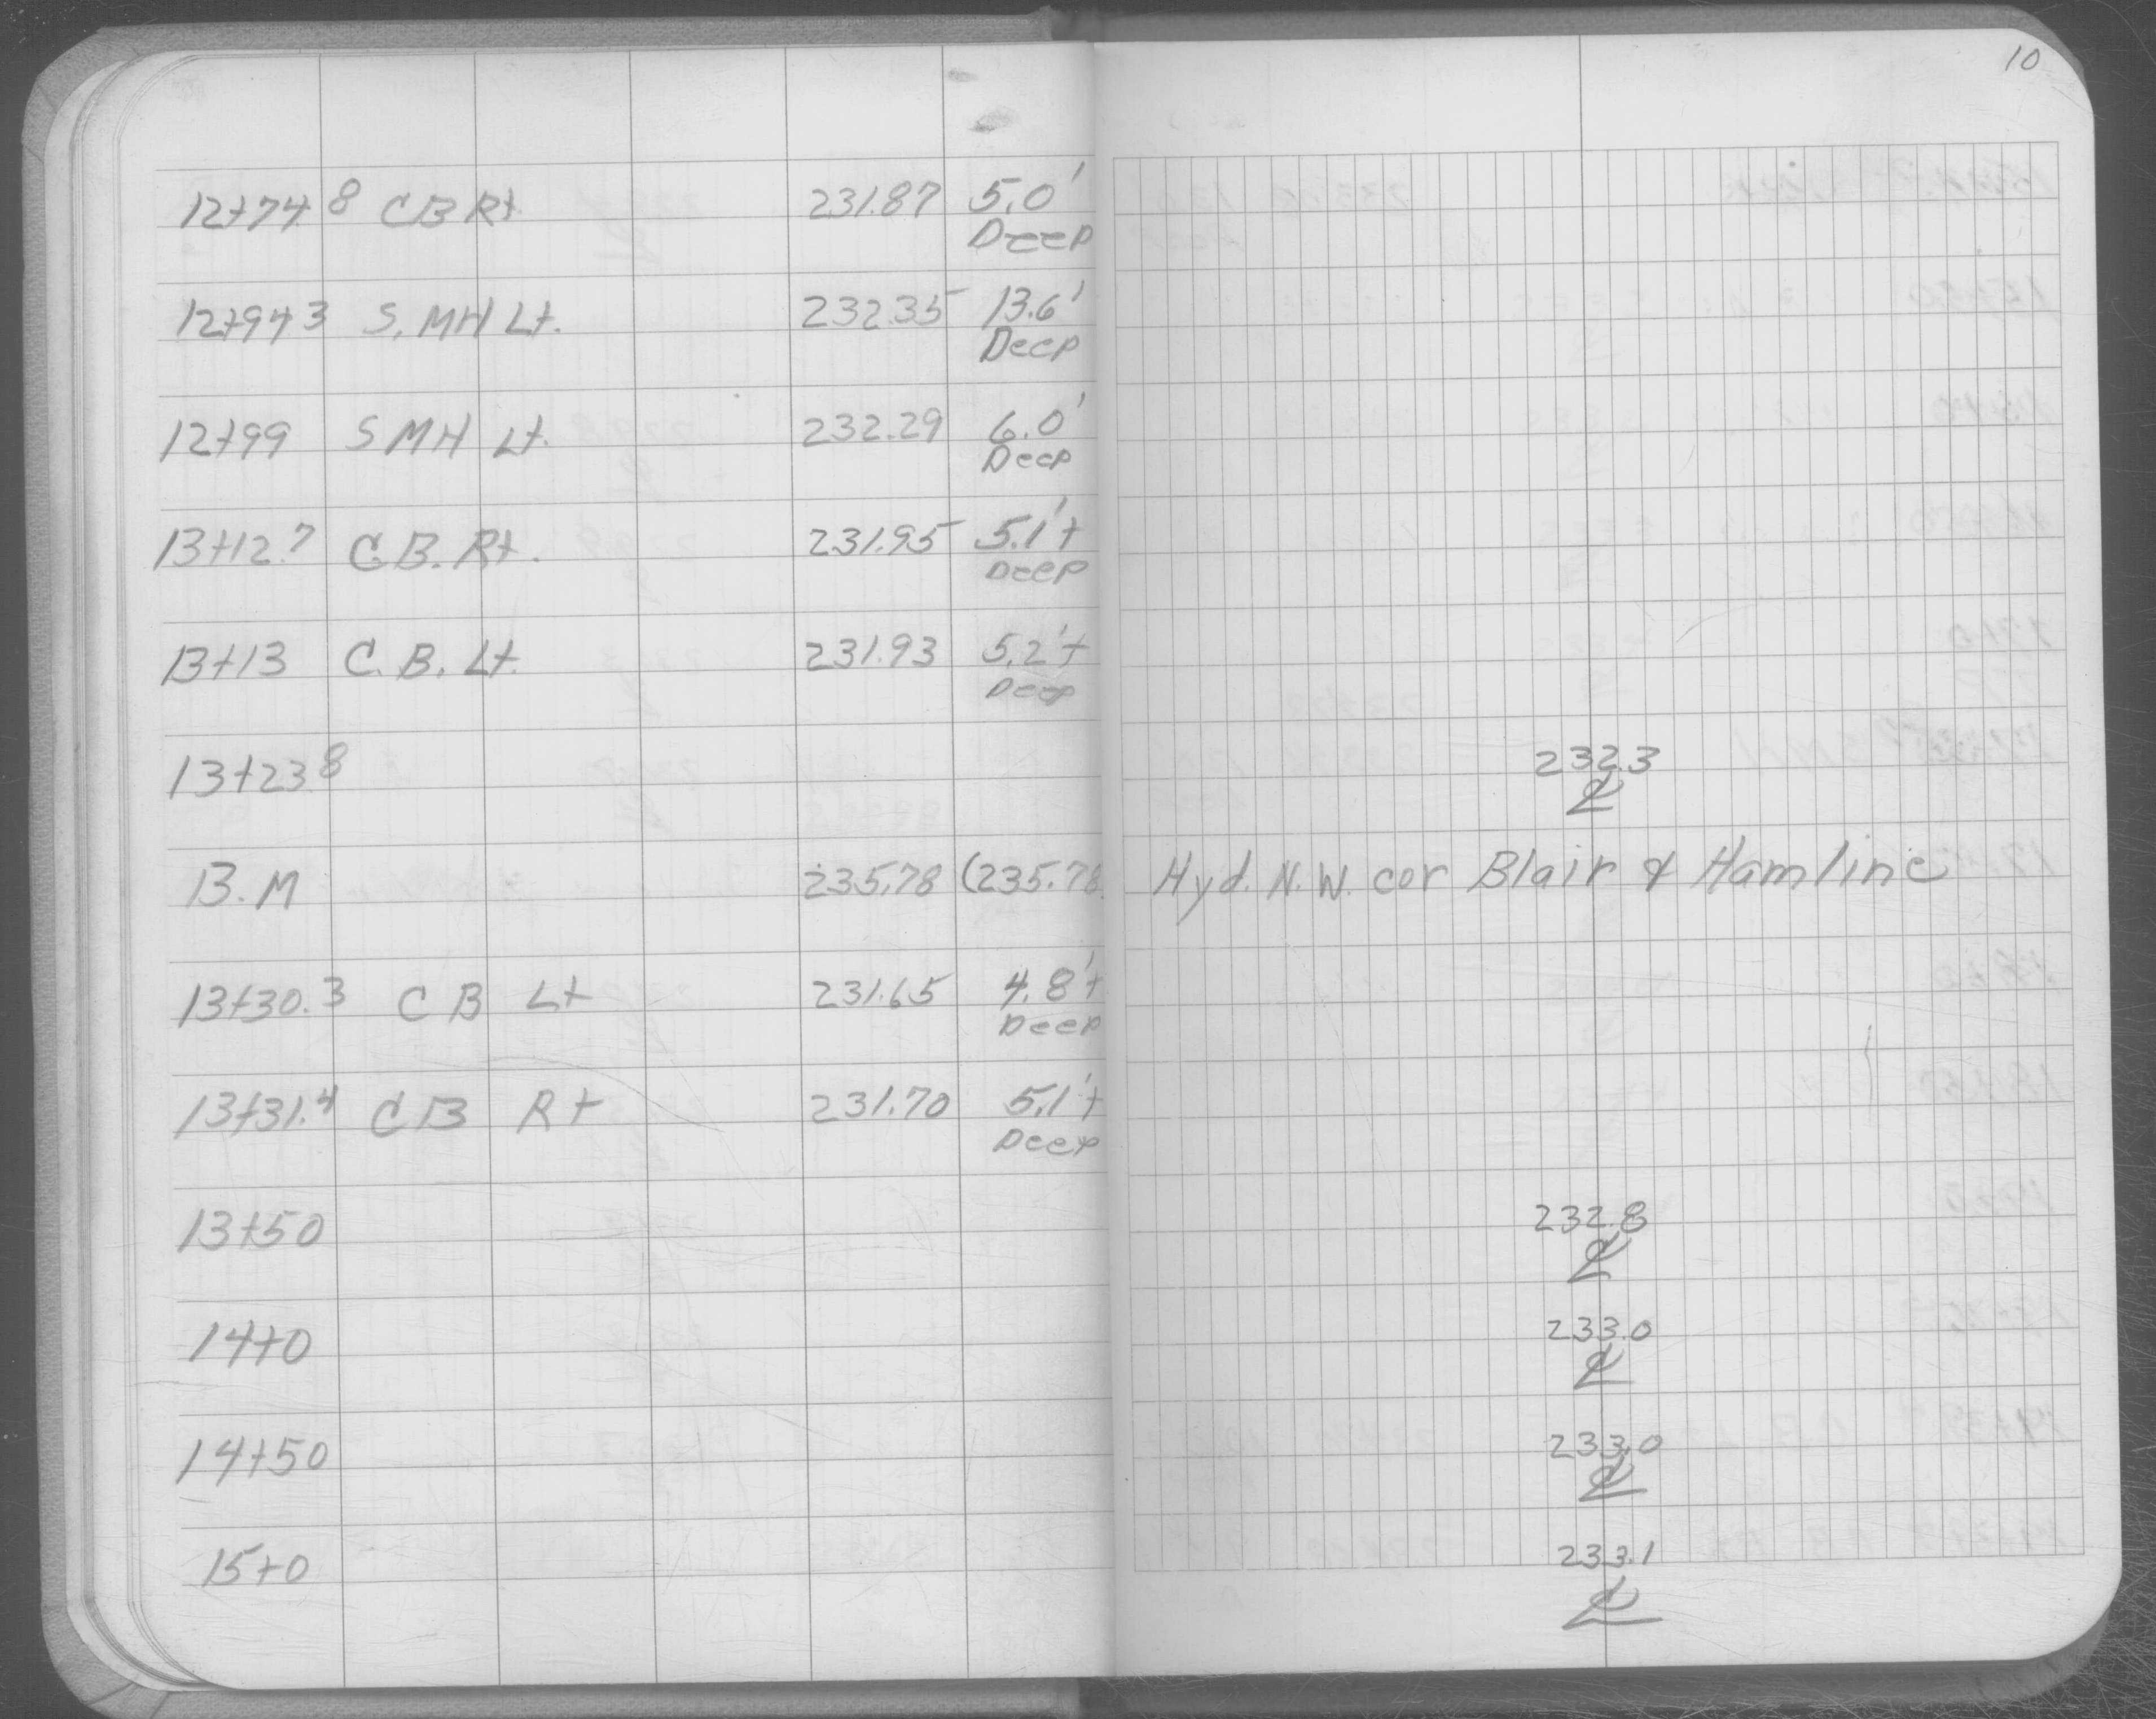 10
12+74.8 CB Rt. 231.87 5.0'
Deep
12+943 S. MH Lt. 232.35 13.6'
Deep
12+99 S MH Lt. 232.29 6.0'
Deep
13+12.7 C.B. Rt. 231.95 5.1'+
Deep
13+13 C.B. Lt. 231.93 5.2'+
Deep
13+23.8 232.3
℄
B.M 235.78 (235.78) Hyd. N.W. cor Blair & Hamline
13+30.3 CB Lt 231.65 4.8'+
Deep
13+31.4 CB Rt 231.70 5.1'+
Deep
13+50 232.8
℄
14+0 233.0
℄
14+50 233.0
℄
15+0 233.1
℄